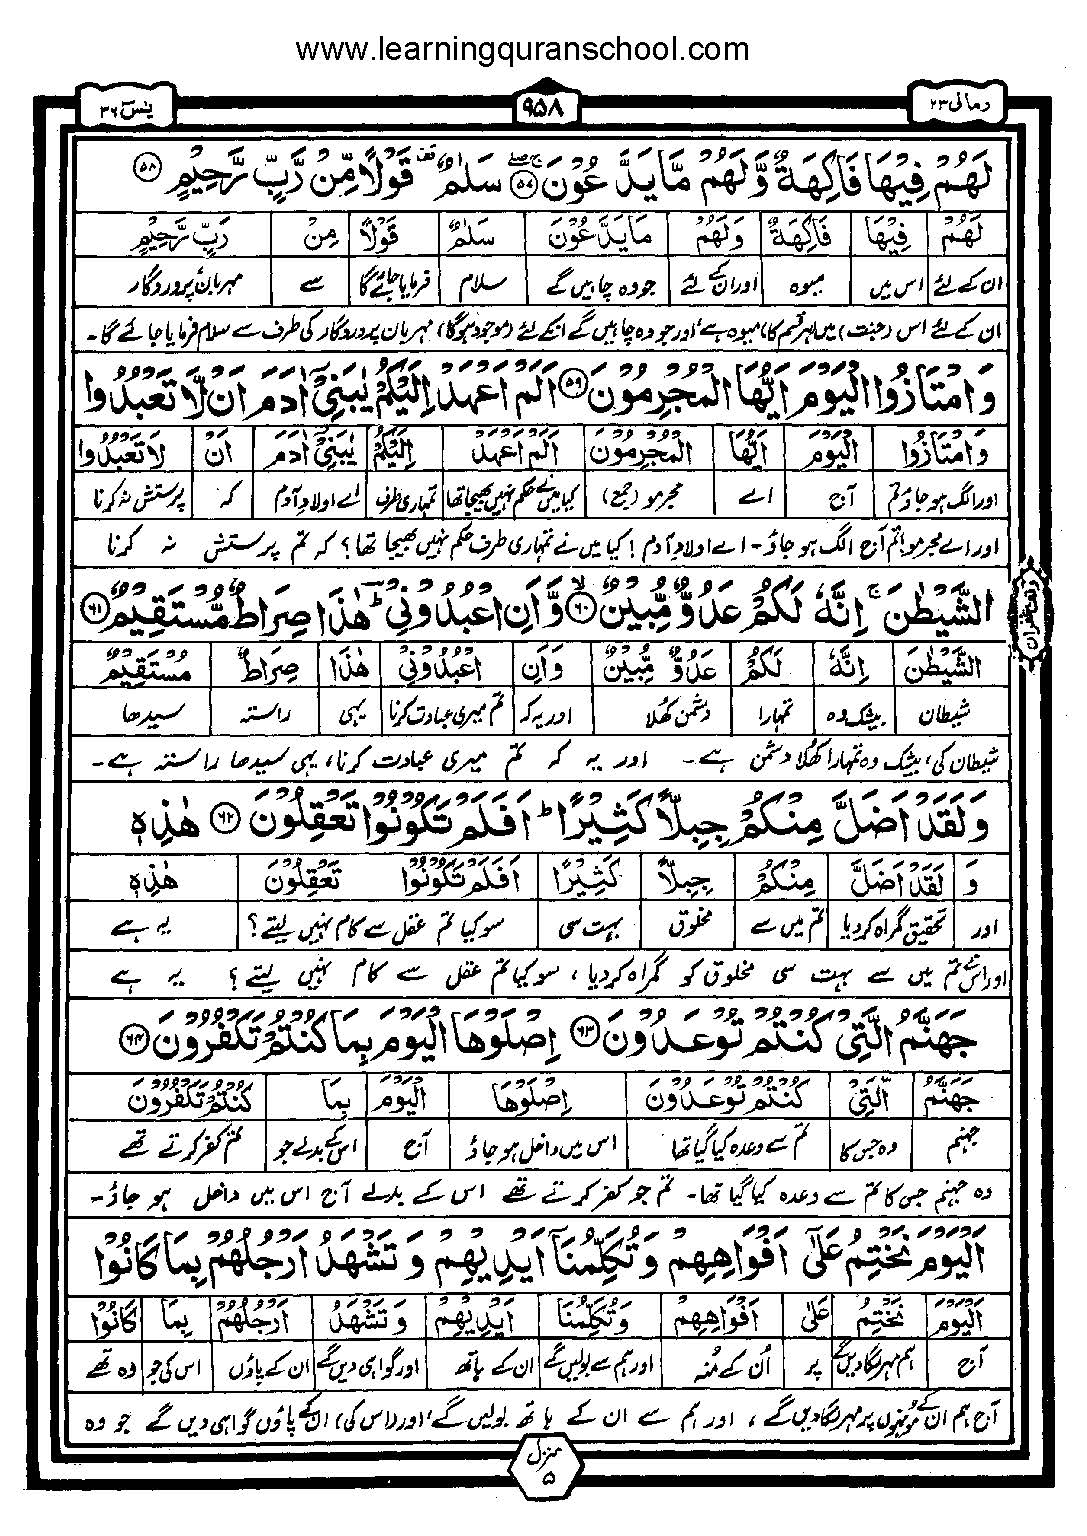 www.learningquranschool.com
ومالی ۲۳
۹۵۸
یٰسٓ ۳۶
لَهُمْ فِيْهَا فَاكِهَةٌ وَّلَهُمْ مَّا يَدَّعُوْنَ ۝۵۷ سَلٰمٌ قَوْلًا مِّنْ رَّبٍّ رَّحِيْمٍ ۝۵۸
لَهُمْ فِيْهَا فَاكِهَةٌ وَلَهُمْ مَا يَدَّعُوْنَ سَلٰمٌ قَوْلًا مِنْ رَبٍّ رَّحِيْمٍ
ان کے لئے اس میں میوہ اور ان کے لئے جو وہ چاہیں گے سلام فرمایا جائے گا سے مہربان پروردگار
ان کے لئے اس (جنت) میں ہر قسم کا میوہ ہے اور جو وہ چاہیں گے انکے لئے (موجود ہوگا) مہربان پروردگار کی طرف سے سلام فرمایا جائے گا۔
وَامْتَازُوا الْيَوْمَ اَيُّهَا الْمُجْرِمُوْنَ ۝۵۹ اَلَمْ اَعْهَدْ اِلَيْكُمْ يٰبَنِيْٓ اٰدَمَ اَنْ لَّا تَعْبُدُوا
وَامْتَازُوا الْيَوْمَ اَيُّهَا الْمُجْرِمُوْنَ اَلَمْ اَعْهَدْ اِلَيْكُمْ يٰبَنِيْٓ اٰدَمَ اَنْ لَا تَعْبُدُوا
اور الگ ہو جاؤ تم آج اے مجرمو (جمع) کیا میں نے حکم نہیں بھیجا تھا تمہاری طرف اے اولاد آدم کہ پرستش نہ کرنا
اور اے مجرمو! تم آج الگ ہو جاؤ۔ اے اولاد آدم! کیا میں نے تمہاری طرف حکم نہیں بھیجا تھا؟ کہ تم پرستش نہ کرنا
الشَّيْطٰنَ ۚ اِنَّهٗ لَكُمْ عَدُوٌّ مُّبِيْنٌ ۝۶۰ وَّاَنِ اعْبُدُوْنِيْ ؕ هٰذَا صِرَاطٌ مُّسْتَقِيْمٌ ۝۶۱
الشَّيْطٰنَ اِنَّهٗ لَكُمْ عَدُوٌّ مُّبِيْنٌ وَاَنِ اعْبُدُوْنِيْ هٰذَا صِرَاطٌ مُسْتَقِيْمٌ
شیطان بیشک وہ تمہارا دشمن کھلا اور یہ کہ تم میری عبادت کرنا یہی راستہ سیدھا
شیطان کی، بیشک وہ تمہارا کھلا دشمن ہے۔ اور یہ کہ تم میری عبادت کرنا، یہی سیدھا راستہ ہے۔
وَلَقَدْ اَضَلَّ مِنْكُمْ جِبِلًّا كَثِيْرًا ؕ اَفَلَمْ تَكُوْنُوْا تَعْقِلُوْنَ ۝۶۲ هٰذِهٖ
وَ لَقَدْ اَضَلَّ مِنْكُمْ جِبِلًّا كَثِيْرًا اَفَلَمْ تَكُوْنُوْا تَعْقِلُوْنَ هٰذِهٖ
اور تحقیق گمراہ کر دیا تم میں سے مخلوق بہت سی سو کیا تم عقل سے کام نہیں لیتے؟ یہ ہے
اور اس نے تم میں سے بہت سی مخلوق کو گمراہ کر دیا، سو کیا تم عقل سے کام نہیں لیتے؟ یہ ہے
جَهَنَّمُ الَّتِيْ كُنْتُمْ تُوْعَدُوْنَ ۝۶۳ اِصْلَوْهَا الْيَوْمَ بِمَا كُنْتُمْ تَكْفُرُوْنَ ۝۶۴
جَهَنَّمُ الَّتِيْ كُنْتُمْ تُوْعَدُوْنَ اِصْلَوْهَا الْيَوْمَ بِمَا كُنْتُمْ تَكْفُرُوْنَ
جہنم وہ جس کا تم سے وعدہ کیا گیا تھا اس میں داخل ہو جاؤ آج اس کے بدلے جو تم کفر کرتے تھے
وہ جہنم جس کا تم سے وعدہ کیا گیا تھا۔ تم جو کفر کرتے تھے اس کے بدلے آج اس میں داخل ہو جاؤ۔
اَلْيَوْمَ نَخْتِمُ عَلٰٓى اَفْوَاهِهِمْ وَتُكَلِّمُنَآ اَيْدِيْهِمْ وَتَشْهَدُ اَرْجُلُهُمْ بِمَا كَانُوْا
اَلْيَوْمَ نَخْتِمُ عَلٰى اَفْوَاهِهِمْ وَتُكَلِّمُنَا اَيْدِيْهِمْ وَتَشْهَدُ اَرْجُلُهُمْ بِمَا كَانُوْا
آج ہم مہر لگا دیں گے پر اُن کے مُنہ اور ہم سے بولیں گے ان کے ہاتھ اور گواہی دیں گے ان کے پاؤں اس کی جو وہ تھے
آج ہم ان کے مونہوں پر مہر لگا دیں گے، اور ہم سے ان کے ہاتھ بولیں گے، اور (اس کی) ان کے پاؤں گواہی دیں گے جو وہ
وقف غفران
منزل ۵